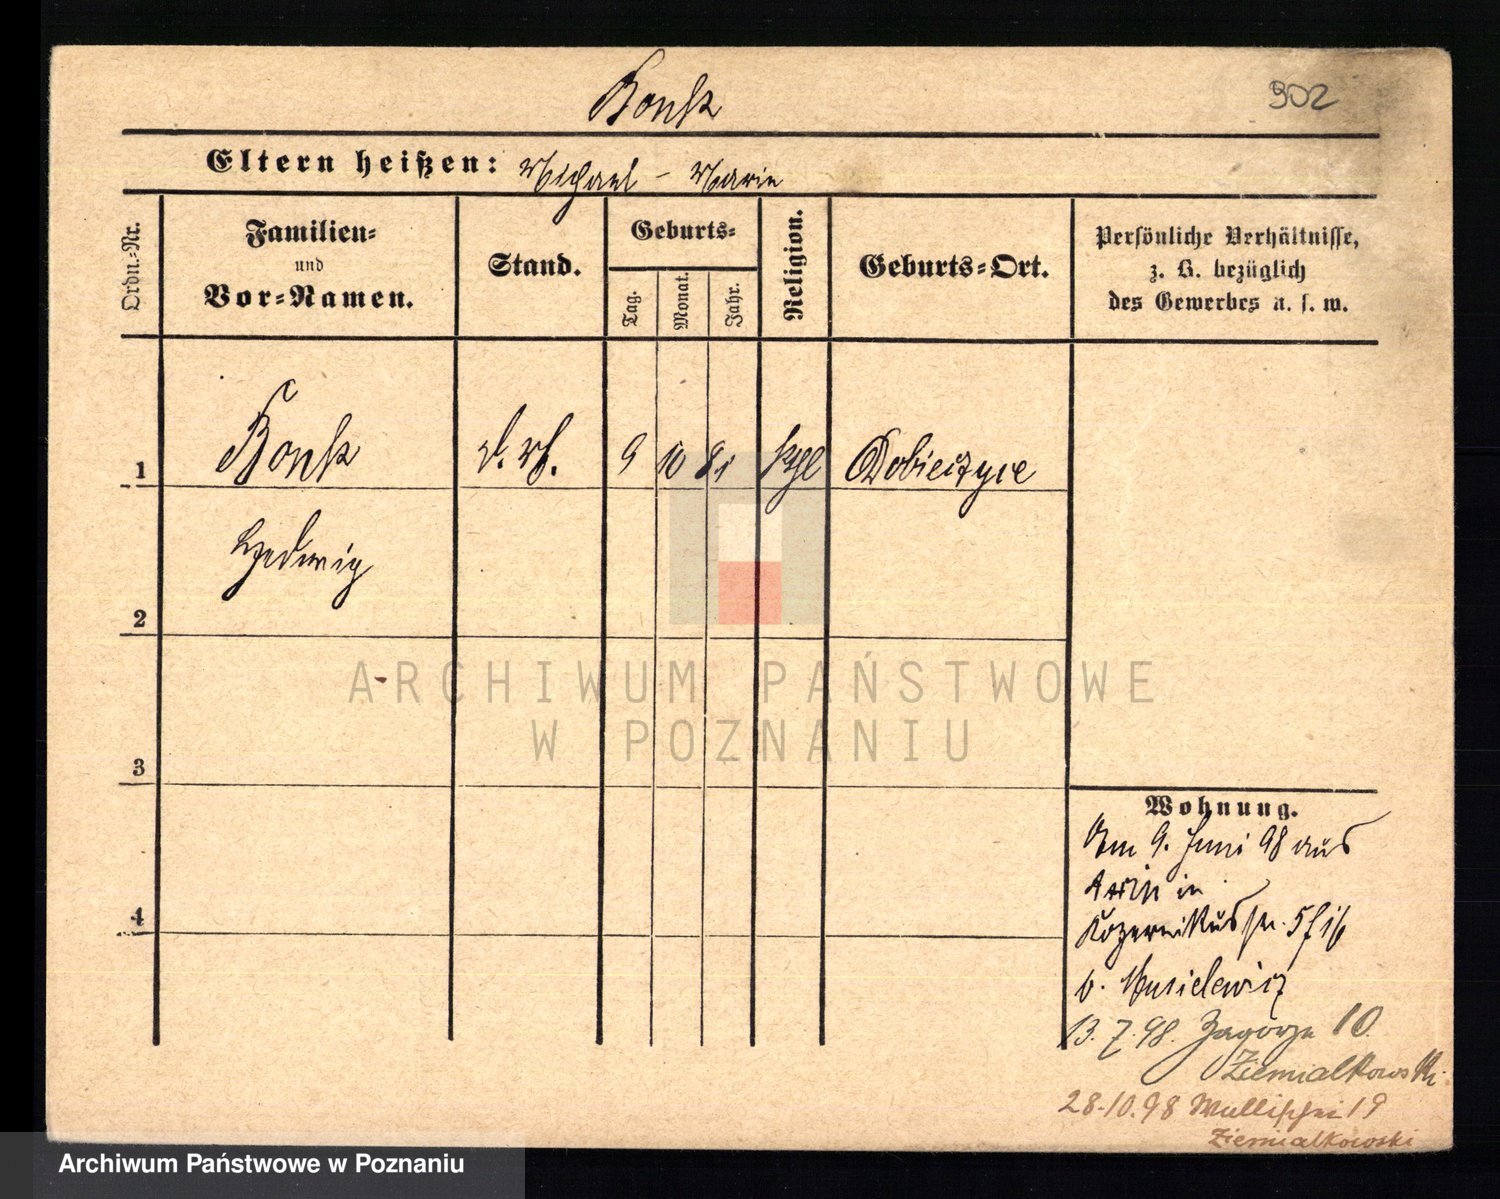 Bonk
902
Eltern heißen: Michael – Marie
Ordn.-Nr.
Familien-
und
Vor-Namen.
Stand.
Geburts-
Tag.
Monat.
Jahr.
Religion.
Geburts-Ort.
Persönliche Verhältnisse,
z. B. bezüglich
des Gewerbes u. s. w.
1
Bonk
9 10 81 ktl Dobieczyce
Hedwig
2
3
4
Wohnung.
Am 9. Juni 98 aus
in
str. 5
b. Musielewicz
13.7.98. Zagorze 10.
Ziemialkowski
28.10.98 Wallischei 19
Ziemialkowski
ARCHIWUM PAŃSTWOWE
W POZNANIU
Archiwum Państwowe w Poznaniu